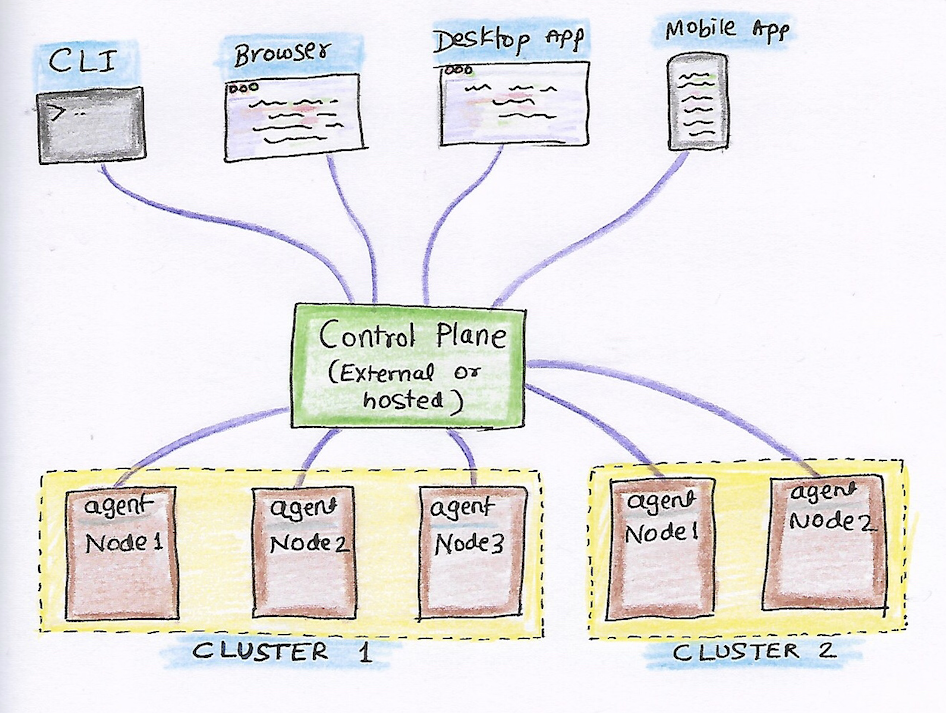 CLI
Browser
Desktop App
Mobile App
>--
Control Plane
(External or
hosted)
agent
Node1
agent
Node2
agent
Node3
agent
Node1
agent
Node2
CLUSTER 1
CLUSTER 2